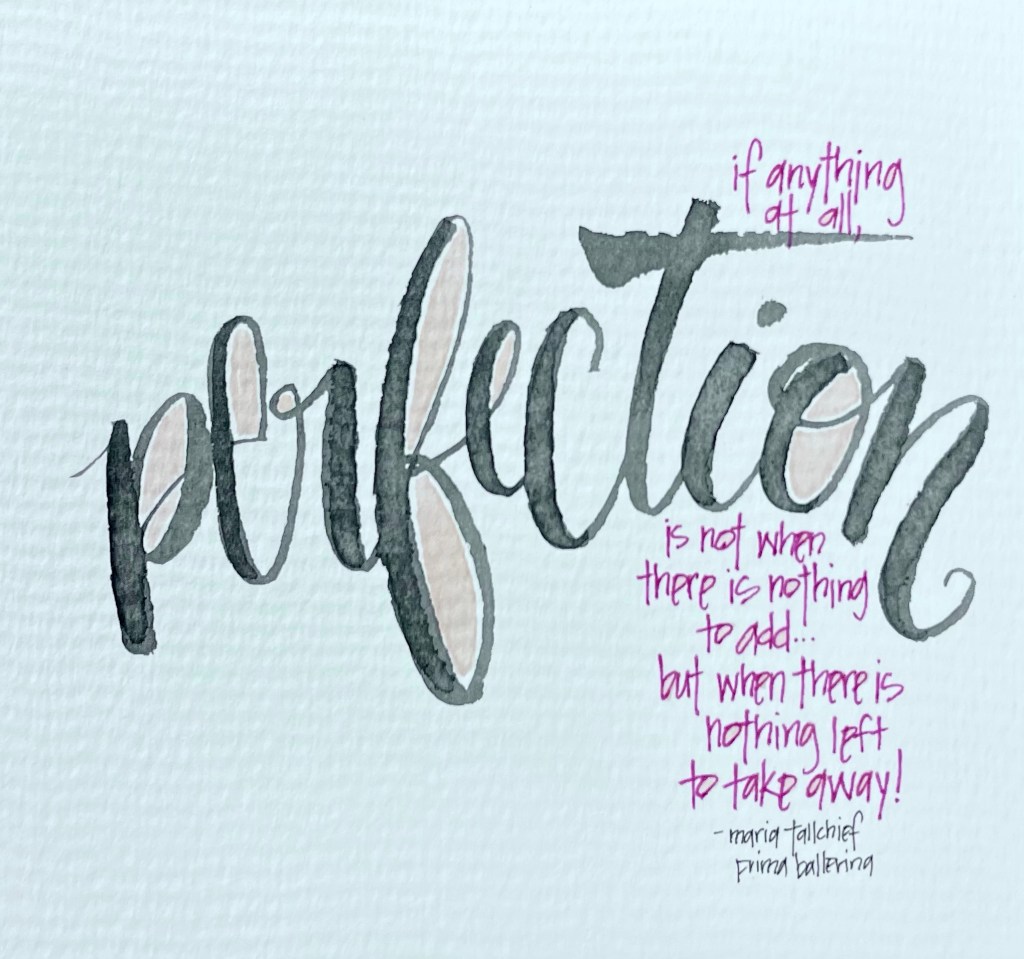 if anything
at all,
perfection
is not when
there is nothing
to add...
but when there is
nothing left
to take away!
- maria tallchief
prima ballerina